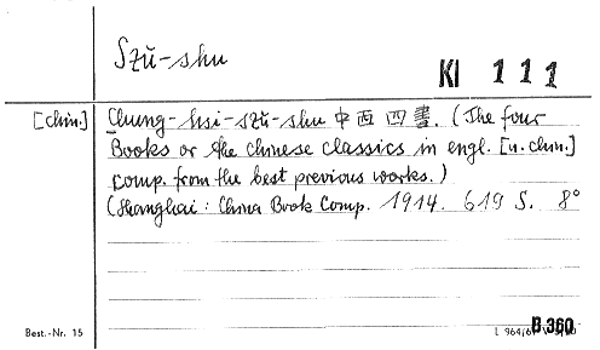 Szŭ-shu
KI 111
[chin.] Chung-hsi-szŭ-shu 中西四書. (The four
Books or the chinese classics in engl. [u. chin.]
comp. from the best previous works.)
(Shanghai: China Book Comp. 1914. 619 S. 8°
B 360
Best.-Nr. 15
L 964/6